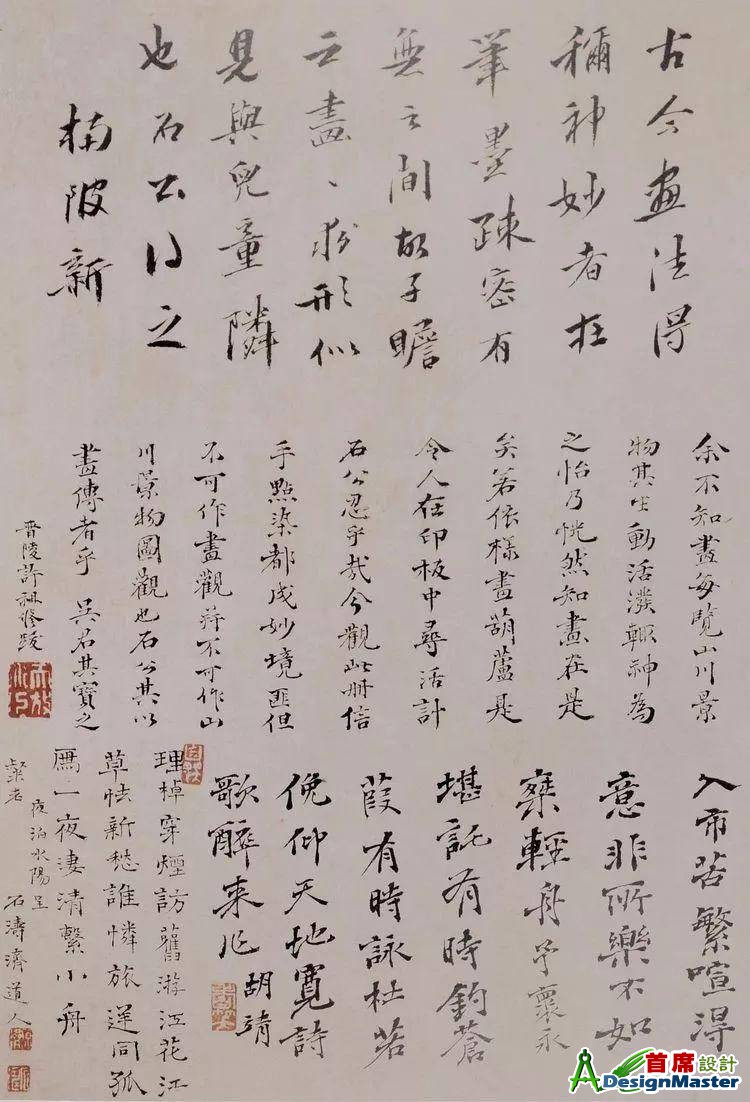 古今画法得
稱神妙者在
筆墨疎密有
無之間故子瞻
云畫、求形似
見與兒童隣
也石公得之
楠陂新
余不知畫每覽山川景
物其生動活潑輒神為
之怡乃恍然知畫在是
矣若依樣畫葫蘆是
令人在印板中尋活計
石公忍乎哉今觀此冊信
手點染都成妙境匪但
不可作畫觀并不可作山
川景物圖觀也石公其以
畫傳者乎 吳君其寶之
晋陵許祖修跋
入市苦繁喧得
意非所樂不如
寀輕舟予褱永
堪託有時鈞蒼
葭有時詠杜若
俛仰天地寬詩
歌醉來作
胡靖
理棹穿煙訪舊游江花江
草怯新愁誰憐旅逆同孤
鴈一夜淒清繫小舟
夜泊水陽呈
粲老
石濤濟道人
首席設計
DesignMaster